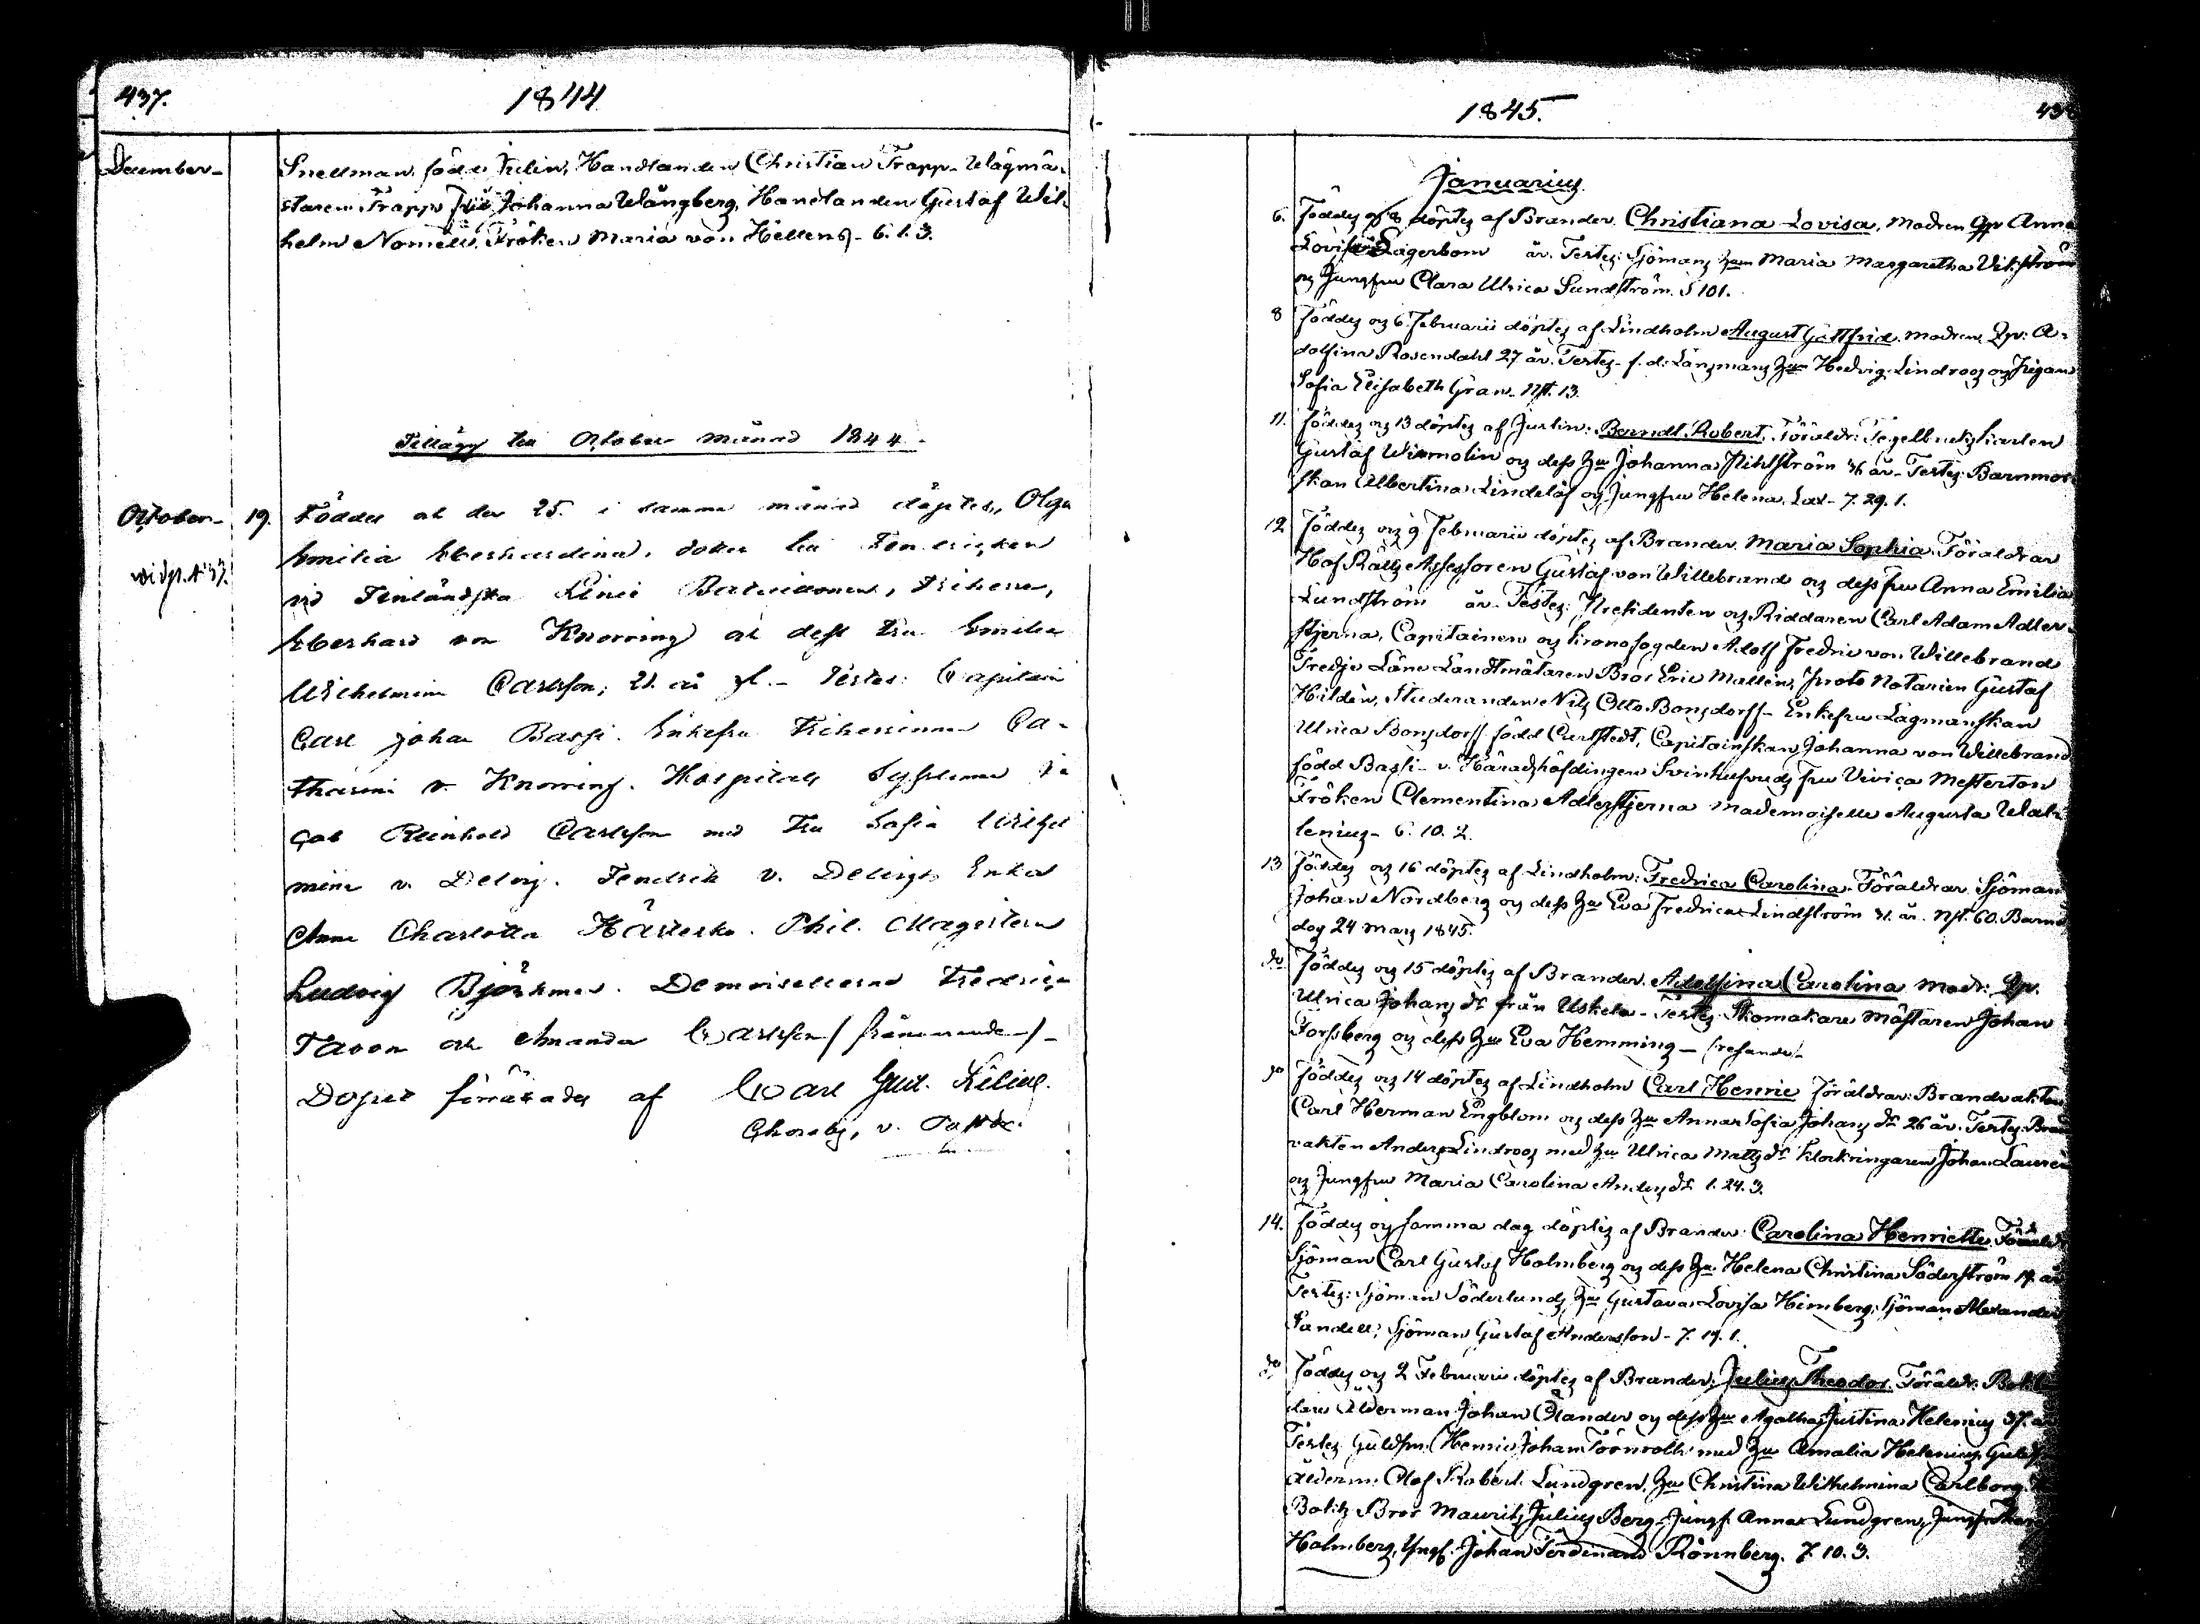 437.
1844
December
Snellman, född Julin, Handlanden Christian Trapp, Wågmä-
staren Trapps Fru Johanna Wångberg, Handlanden Gustaf Wil-
helm Nomell, Fröken Maria von Hellens. 6. 1. 3.
Tillägg till October månad 1844.
October 19. Föddes och den 25. i samma månad döptes, Olga
Emilia Eberhardina, dotter till Fendricken
vid Finländska Linie Batailionen, Friherre,
Eberhard von Knorring och dess Fru Emilia
Wilhelmina Carlsson, 21 år gl. Testes: Capitain
Carl Johan Bassi. Enkefru Friherrinnan Ca-
tharina v. Knorring. Hospitals Sysslomannen Ja-
cob Reinhold Carlsson med Fru Sofia Wilhel
mina v. Delvig. Fendrick v. Delvigs Enka
Anna Charlotta Hästesko. Phil. Magistern
Ludvig Björkman. Demoisellerna Fredrica
Tavon och Amanda Carlsson /: frånvarande :/
Dopet förrättades af Carl Gust.
1845.
Januarius
6. Föddes och 8 döptes af Brander. Christiana Lovisa, Modren Qp. Anna
Lovisa Lagerbom år. Testes: Sjömans Hu Maria Margaretha Vikström
och Jungfru Clara Ulrica Sundström. S 101.
8 Föddes och 6 Februarii döptes af Lindholm August Gottfrid. Modren Qp: A-
dolfina Rosendahl 27 år. Testes: f. d. Länsmans Hu Hedvig Lindroos och Pigan
Sofia Elisabeth Gran. Nst. 13.
11. Föddes och 13 döptes af Juslin: Berndt Robert. Föräldr: Tegelbrukskarlen
Gustaf Wirmolin och dess Hu Johanna Pihlström 36 år. Testes: Barnmor-
skan Albertina Lindelöf och Jungfru Helena Lax. 7. 29. 1.
12 Föddes och 9 Februarii döptes af Brander. Maria Sophia. Föräldrar
HofRätts Assessoren Gustaf von Willebrand och dess fru Anna Emilia
Lundström år. Testes: Presidenten och Riddaren Carl Adam Adler-
stjerna, Capitainen och Kronofogden Adolf Fredric von Willebrand
Tredje Läne Landtmätaren Bror Eric Mallén, Proto Notarien Gustaf
Hildén, Studeranden Nils Otto Bonsdorff. Enkefru Lagmanskan
Ulrica Bonsdorff född Carlstedt, Capitainskan Johanna von Willebrand
född Bassi. v. Häradshöfdingen Svinhufvuds Fru Vivica Mesterton
Fröken Clementina Adlerstjerna Mademoiselle Augusta Wal-
lenius. 6. 10. 2.
13 Föddes och 16 döptes af Lindholm: Fredrica Carolina. Föräldrar Sjöman
Johan Nordberg och dess Hu Eva Fredrica Lindström 31 år. Nst. 60. Barnet
dog 24 Mars 1845.
do Föddes och 15 döptes af Brander. Adolfina Carolina. Modr: Qp.
Ulrica Johans dr från Uskela. Testes: Skomakare Mästaren Johan
Forssberg och dess Hu Eva Hemming
do Föddes och 14 döptes af Lindholm Carl Henric Föräldrar: Brandvakten
Carl Herman Engblom och dess Hu Anna Sofia Johans dr 26 år. Testes: Brand
vakten Anders Lindroos med Hu Ulrica Matts dr Klockringaren Johan Laurén
och Jungfru Maria Carolina Anders dr 1. 24. 3.
14. Föddes och samma dag döptes af Brander: Carolina Henriette. Föräldr
Sjöman Carl Gustaf Holmberg och dess Hu Helena Christina Söderström 19 år
Testes: Sjöman Söderlunds Hu Gustava Lovisa Himberg, Sjöman Alexander
Sandell, Sjöman Gustaf Andersson. 7. 19. 1.
do Föddes och 2 Februarii döptes af Brander: Julius Theodor. Föräldr:
Ålderman Johan Ölander och dess Hu Agatha Justina Helenius 37 år
Testes: Guldsm. Henric Johan Törnroth med Hu Amalia Helenius, Guldsm
ålderm. Olof Robert Lundgren, Hu Christina Wilhelmina Carlborg.
Bror Maurits Julius Berg. Jungf. Anna Lundgren, Jungfru
Holmberg, Yngl. Johan Ferdinand Rönnberg. 7. 10. 3.